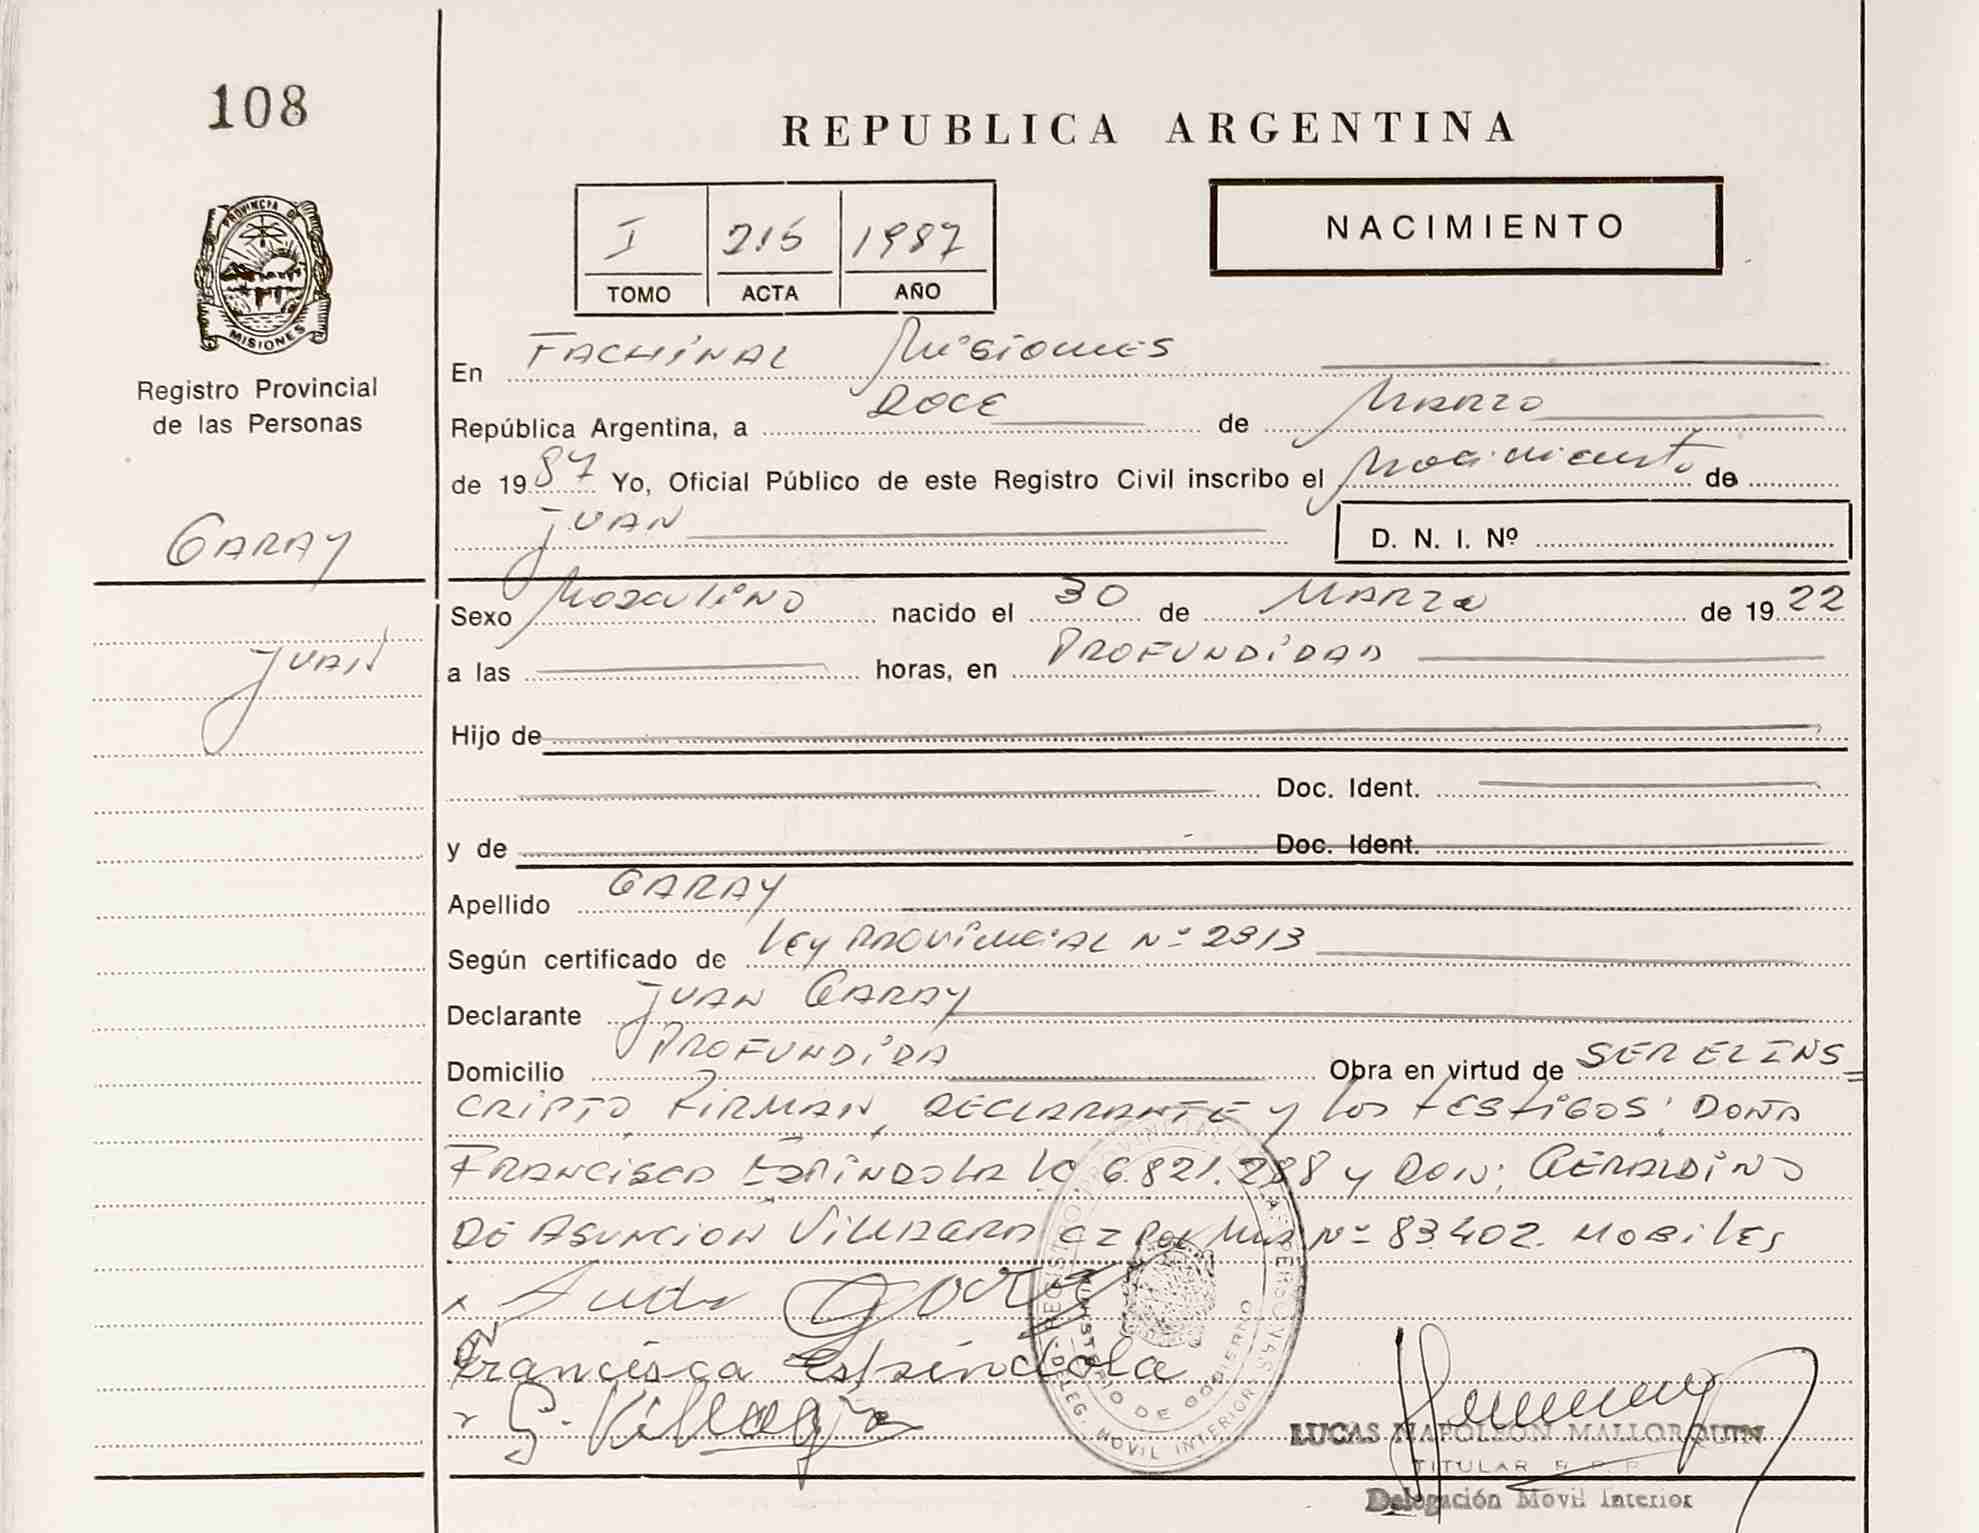 108
REPUBLICA ARGENTINA
PROVINCIA DE
MISIONES
Registro Provincial
de las Personas
I 215 1987
TOMO ACTA AÑO
NACIMIENTO
En FACHINAL Misiones
República Argentina, a DOCE de MARZO
de 1987 Yo, Oficial Público de este Registro Civil inscribo el Nacimiento de
JUAN D. N. I. Nº
GARAY
JUAN
Sexo Masculino nacido el 30 de MARZO de 1922
a las horas, en PROFUNDIDAD
Hijo de
Doc. Ident.
y de Doc. Ident.
Apellido GARAY
Según certificado de Ley PROVINCIAL Nº 2313
Declarante JUAN GARAY
Domicilio PROFUNDIDA Obra en virtud de SER EL INS=
CRIPTO FIRMAN, DECLARANTE y los TESTIGOS: DOÑA
FRANCISCA ESPINDOLA LC. 6.821.288 y DON: GERALDINO
DE ASUNCION Nº 83.402. MOBILES
Francisca Espindola
REGISTRO PROVINCIAL DE LAS PERSONAS
MINISTERIO DE GOBIERNO
DELEG. MOVIL INTERIOR
LUCAS NAPOLEON MALLORQUIN
TITULAR R. P. P.
Delegación Movil Interior